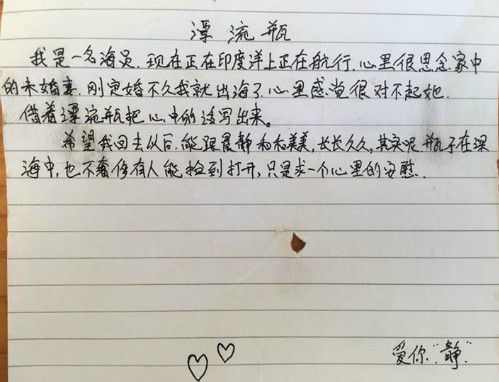 漂流瓶
我是一名海员.现在正在印度洋上正在航行.心里很思念家中
的未婚妻.刚定婚不久我就出海了.心里感觉很对不起她.
借着漂流瓶把心中的话写出来。
希望我回去以后.能跟晨静和和美美.长长久久.其实呢瓶子在深
海中,也不奢侈有人能捡到打开,只是求一个心里的安慰.
爱你"静"